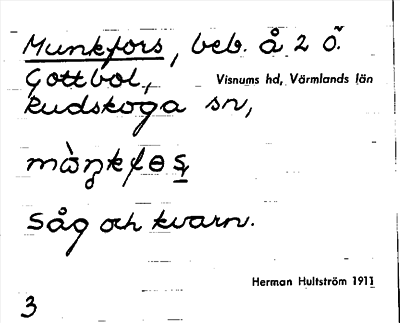 Munkfors, beb. å 2 ö.
Gottbol, Visnums hd, Värmlands län
Rudskoga sn,
Såg och kvarn.
Herman Hultström 1911
3